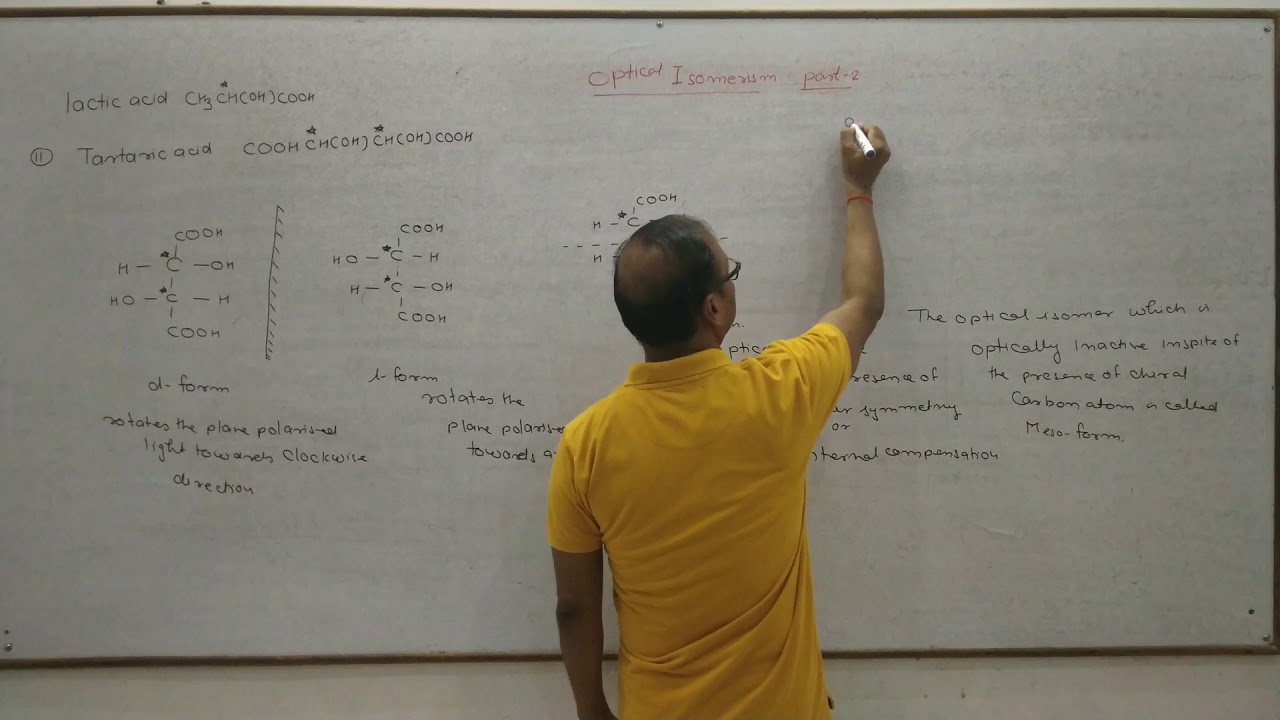 Optical Isomerism part-2
lactic acid CH3 *CH(OH)COOH
(II) Tartaric acid COOH *CH(OH) *CH(OH)COOH
COOH
H - *C - OH
HO - *C - H
COOH
d-form
rotates the plane polarised
light towards clockwise
direction
COOH
HO - *C - H
H - *C - OH
COOH
l-form
rotates the
plane polarise
towards
COOH
H - *C
H
symmetry
or
nternal compensation
The optical isomer which is
optically inactive inspite of
the presence of chiral
Carbon atom is called
Meso-form.